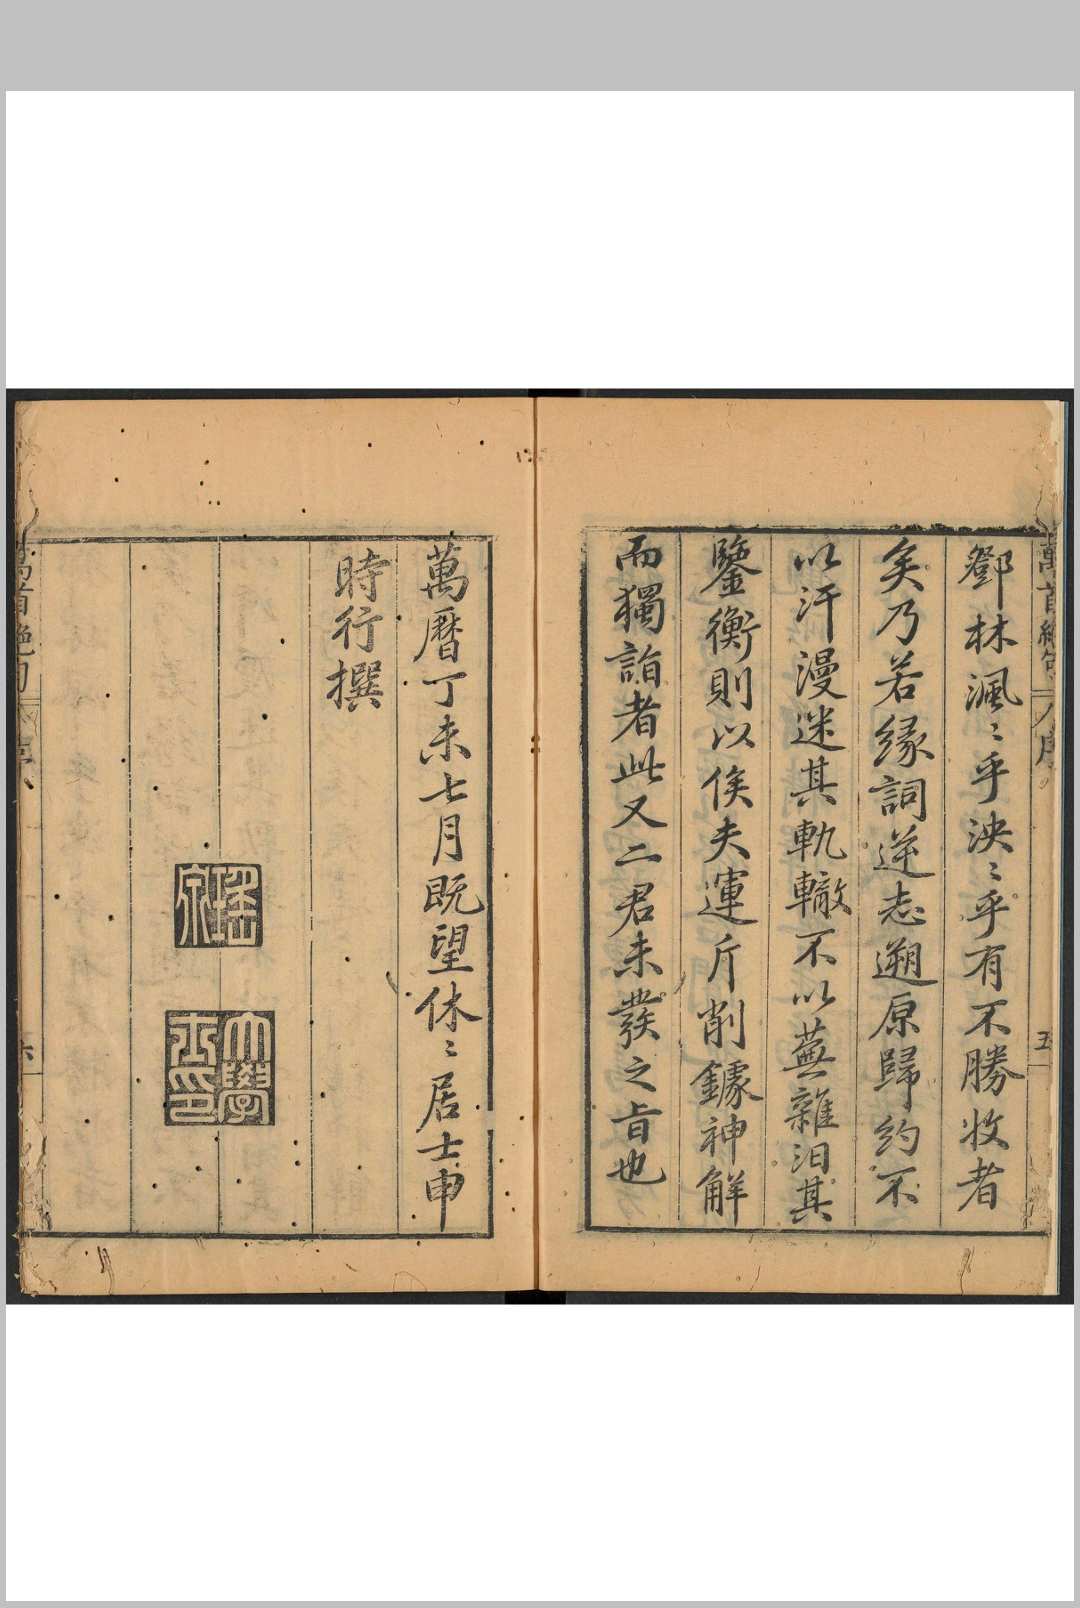 萬首絕句
序
五
鄧林渢〻乎泱〻乎有不勝收者
矣乃若緣詞逆志遡原歸約不
以汗漫迷其軌轍不以蕪雜汨其
鑒衡則以俟夫運斤削鐻神解
而獨詣者此又二君未發之旨也
萬曆丁未七月既望休〻居士申
時行撰
瑤泉
大學士印
萬首絕句